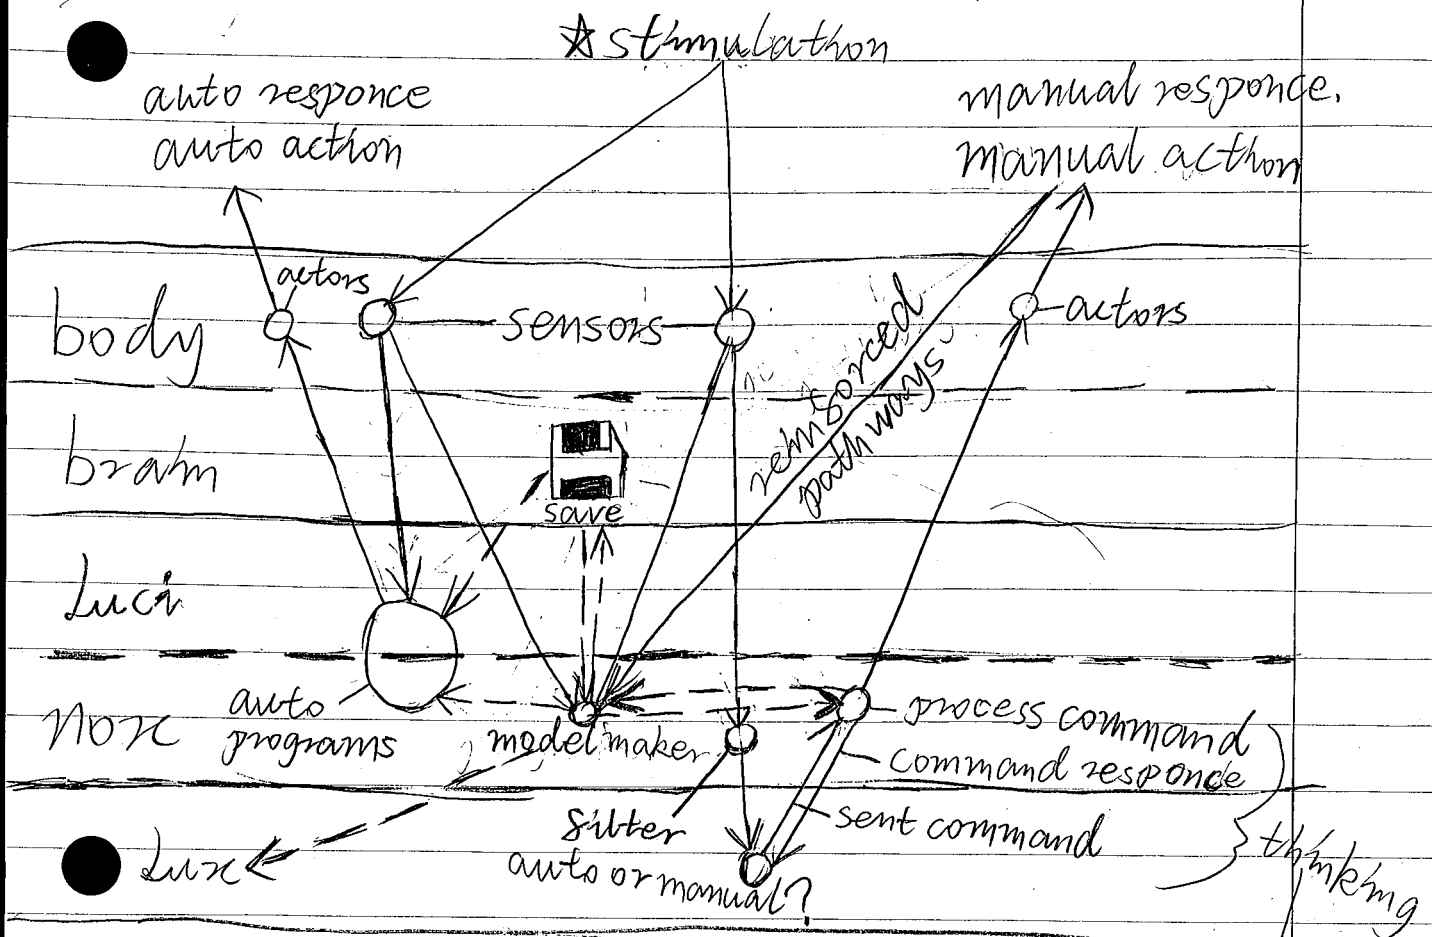 ☆ stimulation
auto responce
auto action
manual responce.
manual action
actors
body
sensors
actors
reinforced
pathways
brain
save
Luci
nox
auto
programs
model maker
process command
command responce
filter
sent command
auto or manual?
Lux
thinking